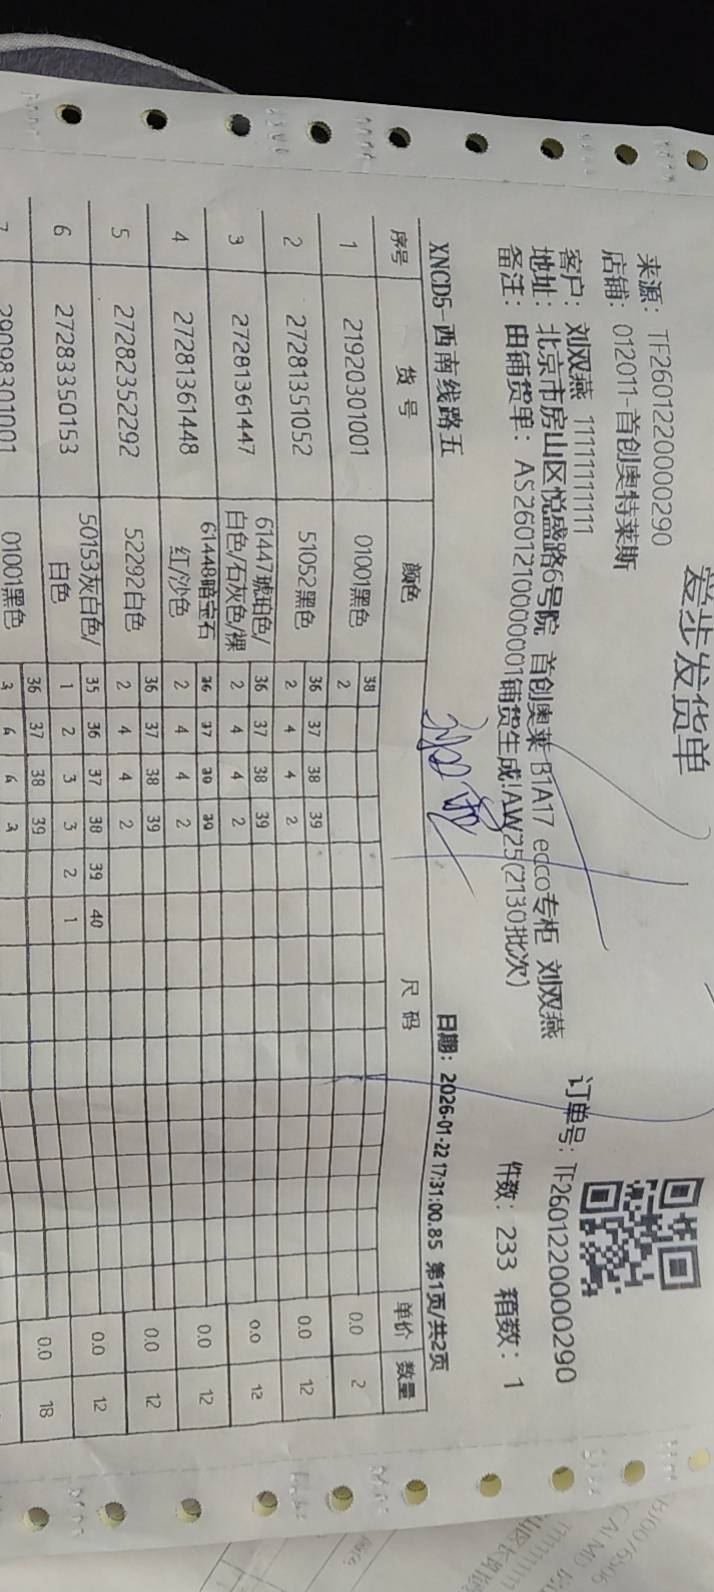 爱步发货单
来源：TF2601220000290
店铺：012011-首创奥特莱斯
客户：刘双燕 11111111111
订单号：TF2601220000290
地址：北京市房山区悦盛路6号院 首创奥莱 B1A17 ecco专柜 刘双燕
备注：由铺货单：AS2601210000001铺货生成!AW25(2130批次)
件数：233 箱数：1
XNCD5-西南线路五 日期：2026-01-22 17:31:00.85 第1页/共2页
序号 货号 颜色 尺码 单价 数量
38
1 21920301001 01001黑色 2 0.0 2
36 37 38 39
2 27281351052 51052黑色 2 4 4 2 0.0 12
61447琥珀色/ 36 37 38 39
3 27281361447 白色/石灰色/裸 2 4 4 2 0.0 12
61448暗宝石 36 37 38 39
4 27281361448 红/沙色 2 4 4 2 0.0 12
36 37 38 39
5 27282352292 52292白色 2 4 4 2 0.0 12
50153灰白色/ 35 36 37 38 39 40
6 27283350153 白色 1 2 3 3 2 1 0.0 12
36 37 38 39
7 29098301001 01001黑色 3 6 6 3 0.0 18